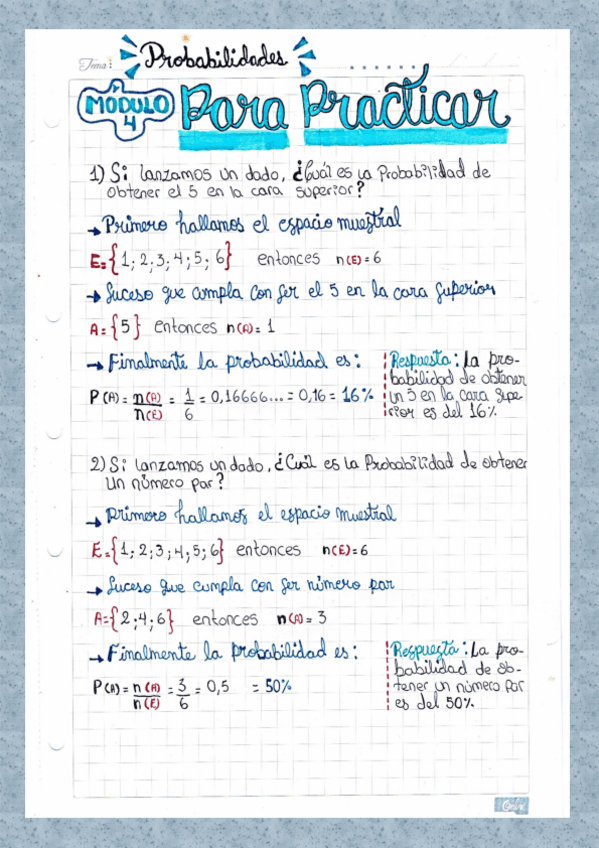 Tema: Probabilidades
MÓDULO
4
Para Practicar
1) Si lanzamos un dado, ¿Cuál es la Probabilidad de
obtener el 5 en la cara superior?
→ Primero hallamos el espacio muestral
E={1;2;3;4;5;6} entonces n(E)=6
→ Suceso que cumpla con ser el 5 en la cara superior
A={5} entonces n(A)=1
→ Finalmente la probabilidad es:
P(A)= n(A)/n(E) = 1/6 = 0,16666... = 0,16 = 16%
Respuesta: La pro-
babilidad de obtener
un 5 en la cara supe-
rior es del 16%
2) Si lanzamos un dado, ¿Cuál es la Probabilidad de obtener
un número par?
→ Primero hallamos el espacio muestral
E={1;2;3;4;5;6} entonces n(E)=6
→ Suceso que cumpla con ser número par
A={2;4;6} entonces n(A)=3
→ Finalmente la probabilidad es:
P(A)= n(A)/n(E) = 3/6 = 0,5 = 50%
Respuesta: La pro-
babilidad de ob-
tener un número par
es del 50%